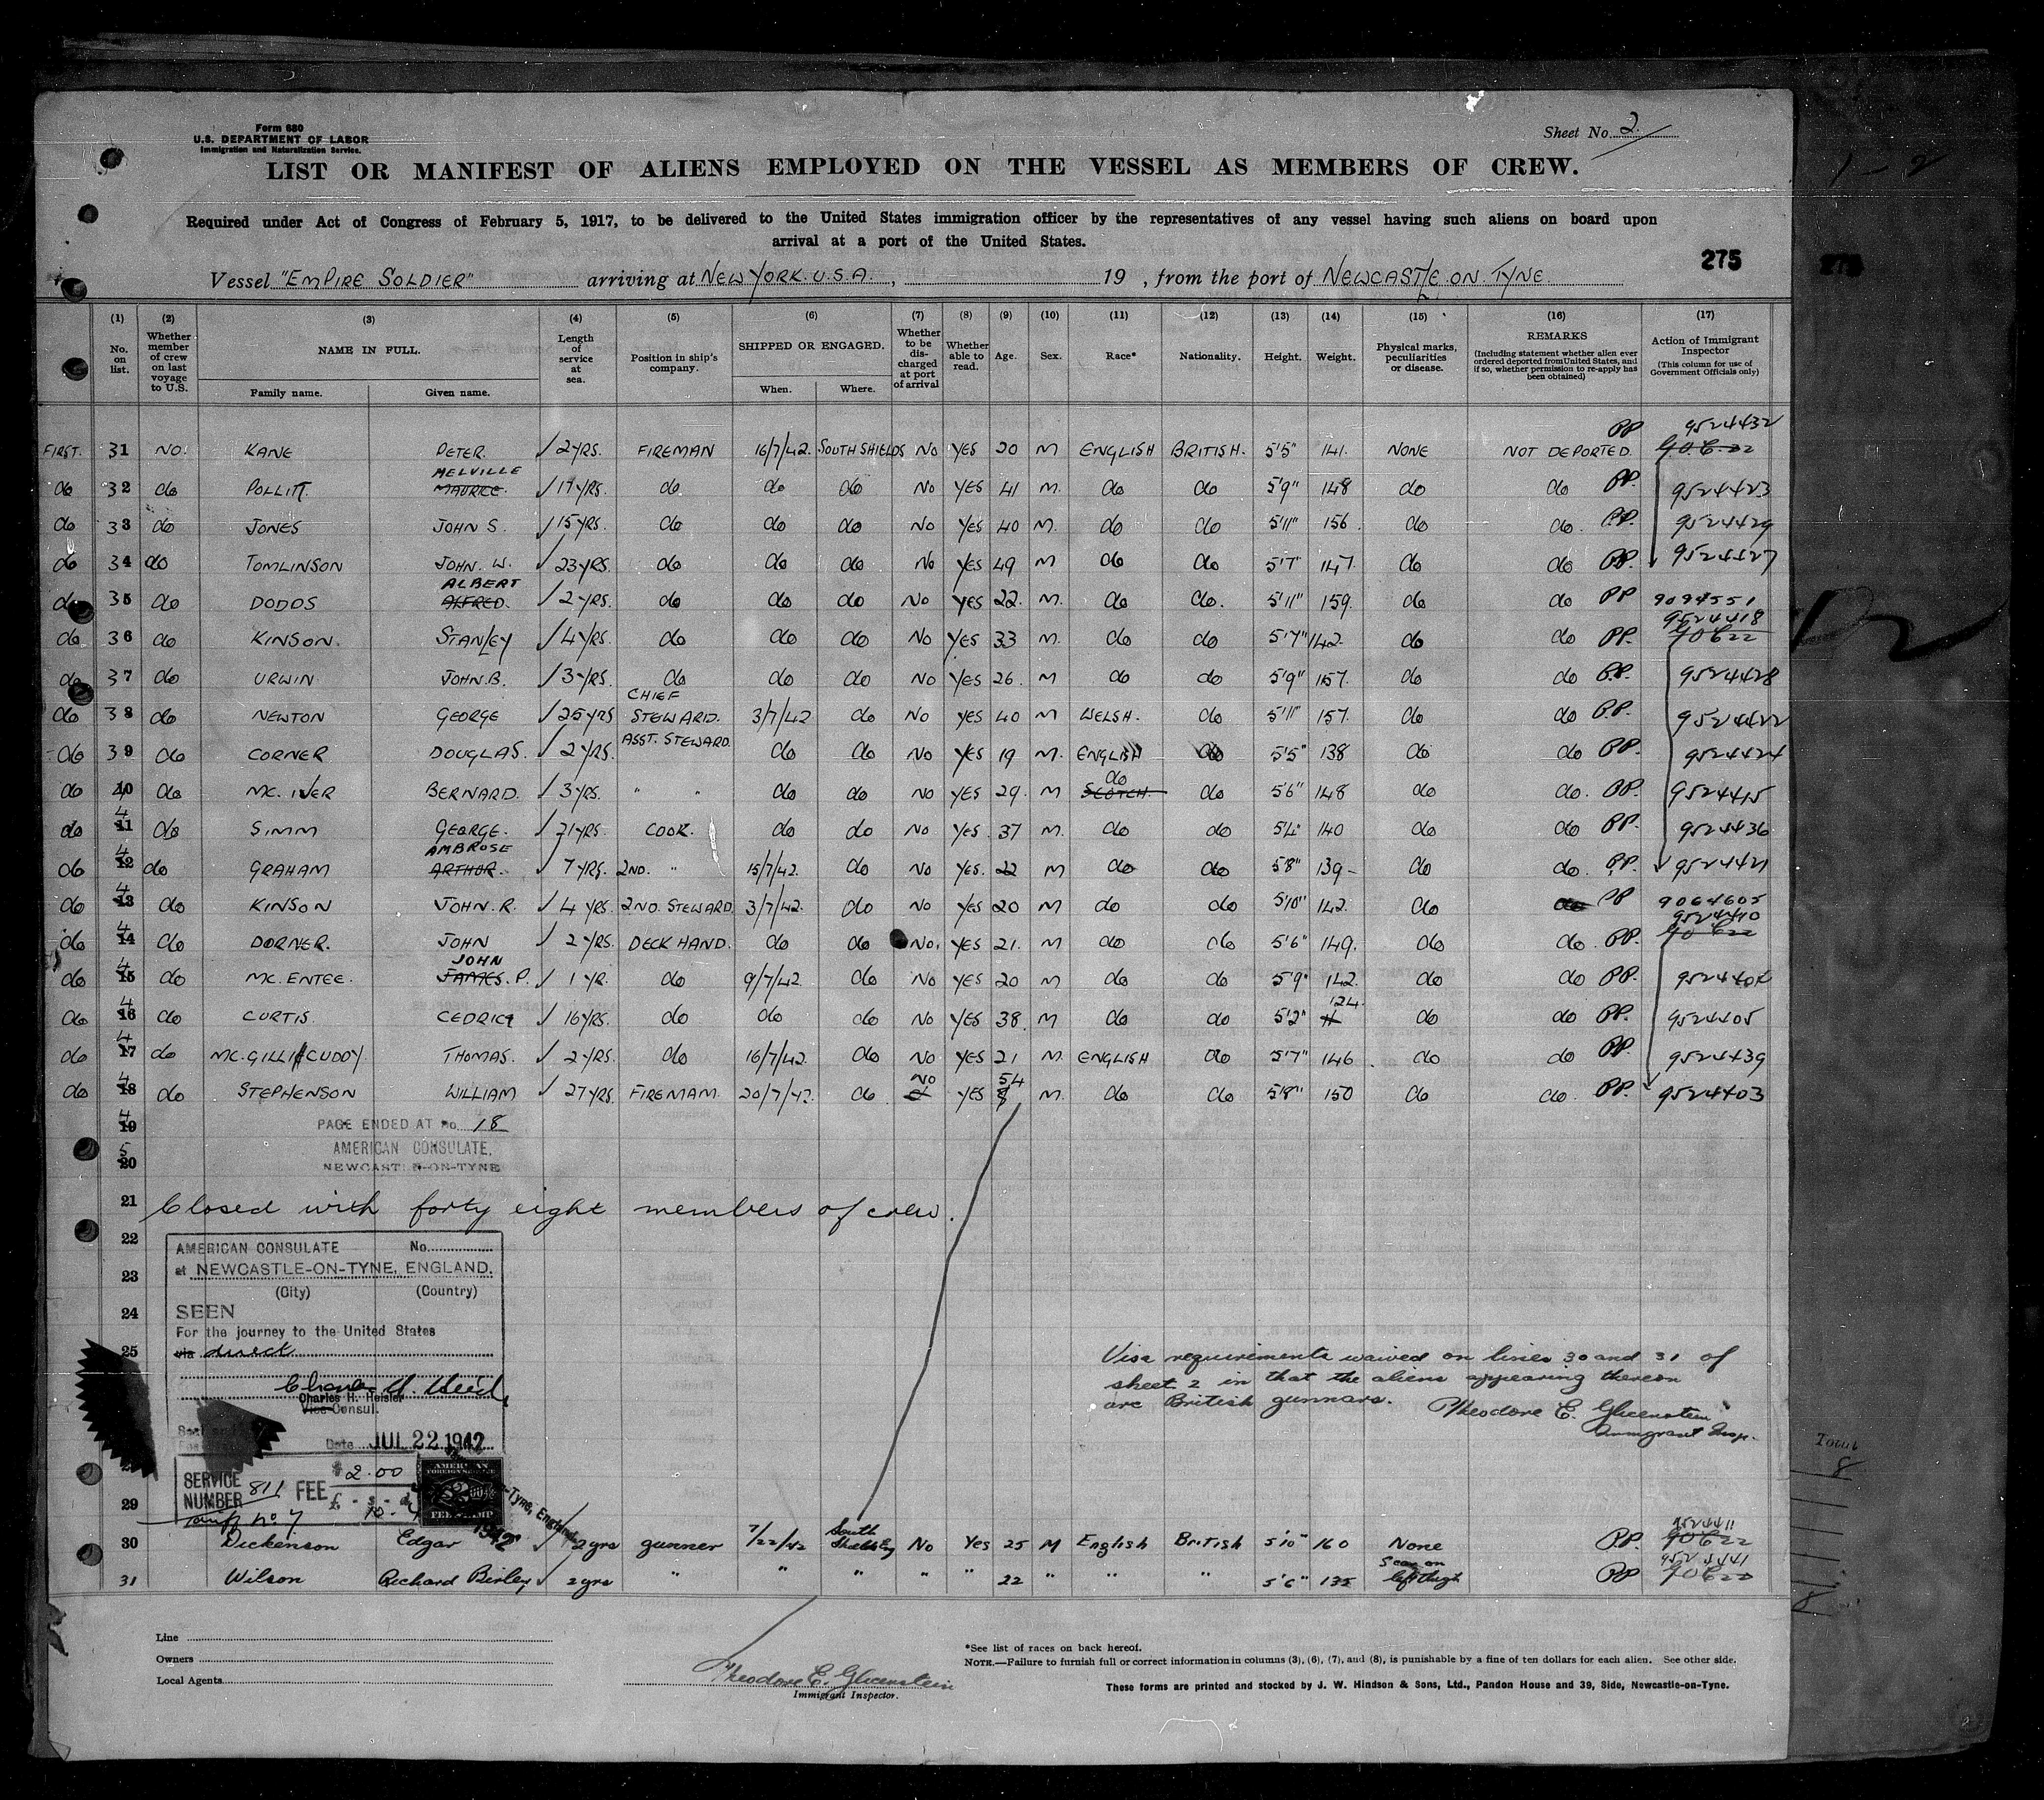 Form 680
U.S. DEPARTMENT OF LABOR
Immigration and Naturalization Service.
Sheet No. 2
LIST OR MANIFEST OF ALIENS EMPLOYED ON THE VESSEL AS MEMBERS OF CREW.
Required under Act of Congress of February 5, 1917, to be delivered to the United States immigration officer by the representatives of any vessel having such aliens on board upon
arrival at a port of the United States.
275
Vessel "EMPIRE SOLDIER" arriving at NEW YORK. U.S.A. , 19 , from the port of NEWCASTLE. ON. TYNE.
(1) (2) (3) (4) (5) (6) (7) (8) (9) (10) (11) (12) (13) (14) (15) (16) (17)
No. on list. Whether member of crew on last voyage to U.S. NAME IN FULL. Family name. Given name. Length of service at sea. Position in ship's company. SHIPPED OR ENGAGED. When. Where. Whether to be discharged at port of arrival Whether able to read. Age. Sex. Race* Nationality. Height. Weight. Physical marks, peculiarities or disease. REMARKS (Including statement whether alien ever ordered deported from United States, and if so, whether permission to re-apply has been obtained) Action of Immigrant Inspector (This column for use of Government Officials only)
FIRST. 31 NO. KANE PETER. 2 YRS. FIREMAN 16/7/42. SOUTH SHIELDS NO YES 20 M ENGLISH BRITISH. 5'5" 141. NONE NOT DEPORTED. PP 9524432
do 32 do POLLITT. MELVILLE MAURICE. 17 YRS. do do do NO YES 41 M. do do 5'9" 148 do do PP. 9524423
do 33 do JONES JOHN S. 15 YRS. do do do NO YES 40 M. do do 5'11" 156. do do. PP. 9524429
do 34 do TOMLINSON JOHN. W. 23 YRS. do do do No YES 49 M do do 5'7" 147. do do PP. 9524427
do 35 do DODDS ALBERT ALFRED. 2 YRS. do do do NO YES 22. M. do do. 5'11" 159. do do PP 9094551
do 36 do KINSON. STANLEY 4 YRS. do do do NO YES 33 M. do do 5'7" 142. do do PP. 9524418
do 37 do URWIN JOHN. B. 3 YRS. do do do NO YES 26. M do do 5'9" 157. do do P.P. 9524428
do 38 do NEWTON GEORGE 25 YRS CHIEF STEWARD. 3/7/42 do NO YES 40 M WELSH. do 5'11" 157. do do P.P. 9524422
do 39 do CORNER DOUGLAS. 2 YRS. ASST. STEWARD. do do NO YES 19 M. ENGLISH do 5'5" 138 do do PP. 9524424
do 40 do MC. IVER BERNARD. 3 YRS. " " do do NO YES 29. M do SCOTCH. do 5'6" 148 do do. PP. 9524415
do 41 do SIMM GEORGE. 21 YRS. COOK. do do NO YES. 37 M. do do 5'4" 140 do do PP. 9524436
do 42 do GRAHAM AMBROSE ARTHUR. 7 YRS. 2ND. " 15/7/42. do NO YES. 22 M do do 5'8" 139- do do. P.P. 9524421
do 43 do KINSON JOHN. R. 4 YRS. 2ND. STEWARD. 3/7/42. do NO YES 20 M do do 5'10" 142. do do PP 9064605
do 44 do DORNER. JOHN 2 YRS. DECK HAND. do do NO. YES 21. M do do 5'6" 149. do do. PP. 9524410
do 45 do MC. ENTEE. JOHN JAMES. P. 1 YR. do 9/7/42. do NO YES 20 M do do 5'9" 142. do do PP.
do 46 do CURTIS. CEDRIC 16 YRS. do do do NO YES 38. M do do 5'2" 124. do do PP. 9524405
do 47 do MC. GILLICUDDY. THOMAS. 2 YRS. do 16/7/42. do NO YES 21 M. ENGLISH do 5'7" 146 do do PP. 9524439
do 48 do STEPHENSON WILLIAM 27 YRS. FIREMAM. 20/7/42. do NO YES 54 M. do do 5'8" 150 do do. PP. 9524403
49
PAGE ENDED AT No. 18
AMERICAN CONSULATE,
50
NEWCASTLE-ON-TYNE
21
Closed with forty eight members of crew.
22
AMERICAN CONSULATE No.
at NEWCASTLE-ON-TYNE, ENGLAND.
23
(City) (Country)
24
SEEN
For the journey to the United States
25
via direct
Charles H. Heisler
Vice Consul.
Date JUL 22 1942
Visa requirements waived on lines 30 and 31 of
sheet 2 in that the aliens appearing thereon
are British gunners. Theodore E. Glicenstein
Immigrant Insp.
SERVICE NUMBER 811 FEE $2.00
£ - s - d
AMERICAN FOREIGN SERVICE
FEE STAMP
Tariff No 7
29
30 Dickenson Edgar 2 yrs gunner 7/22/42 South Shields Eng No Yes 25 M English British 5'10" 160 None PP. 9524411
31 Wilson Richard Birley 2 yrs " " " " " 22 " " " 5'6" 135 Scar on left thigh PP
Line
Owners
Local Agents
Theodore E. Glicenstein
Immigrant Inspector.
*See list of races on back hereof.
NOTE.—Failure to furnish full or correct information in columns (3), (6), (7), and (8), is punishable by a fine of ten dollars for each alien. See other side.
These forms are printed and stocked by J. W. Hindson & Sons, Ltd., Pandon House and 39, Side, Newcastle-on-Tyne.
1 - 2
Total
8